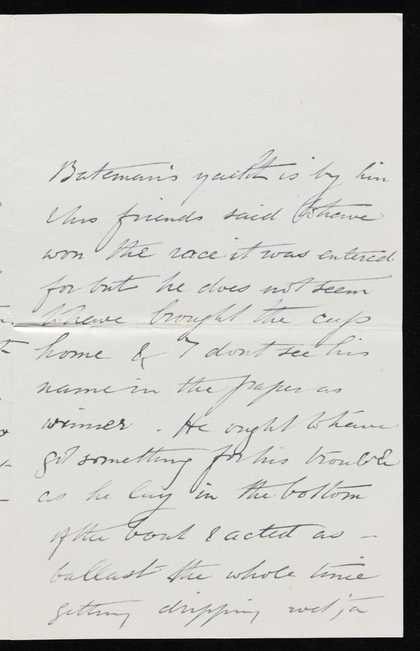 Bateman's yacht is by him
& his friends said to have
won the race it was entered
for but he does not seem
to have brought the cup
home & I dont see his
name in the paper as
winner. He ought to have
got something for his trouble
as he lay in the bottom
of the boat & acted as -
ballast the whole time
getting dripping wet; a